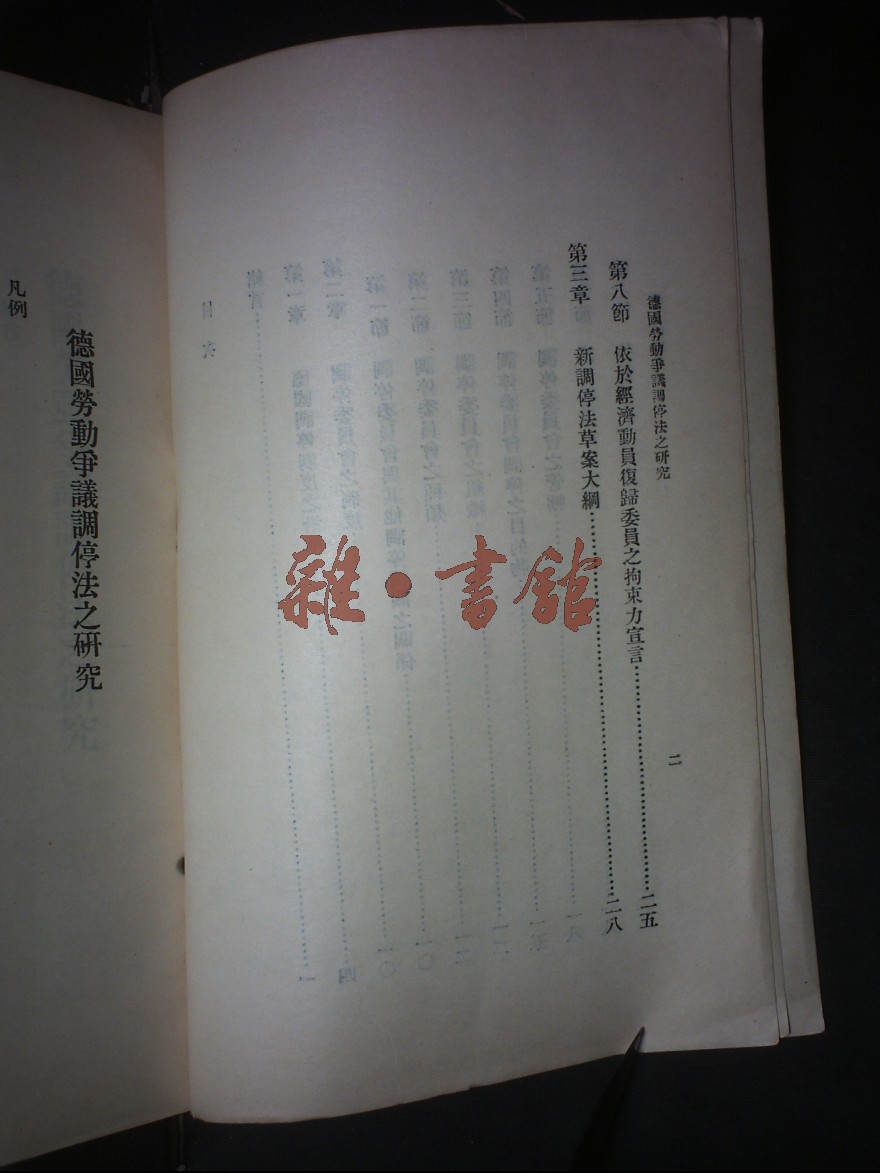 德國勞動爭議調停法之研究
二
第八節 依於經濟動員復歸委員之拘束力宣言……二五
第三章 新調停法草案大綱……二八
雜•書館
德國勞動爭議調停法之研究
凡例